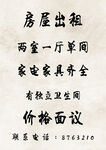 房屋出租
两室一厅单间
家电家具齐全
有独立卫生间
价格面议
联系电话：8763210